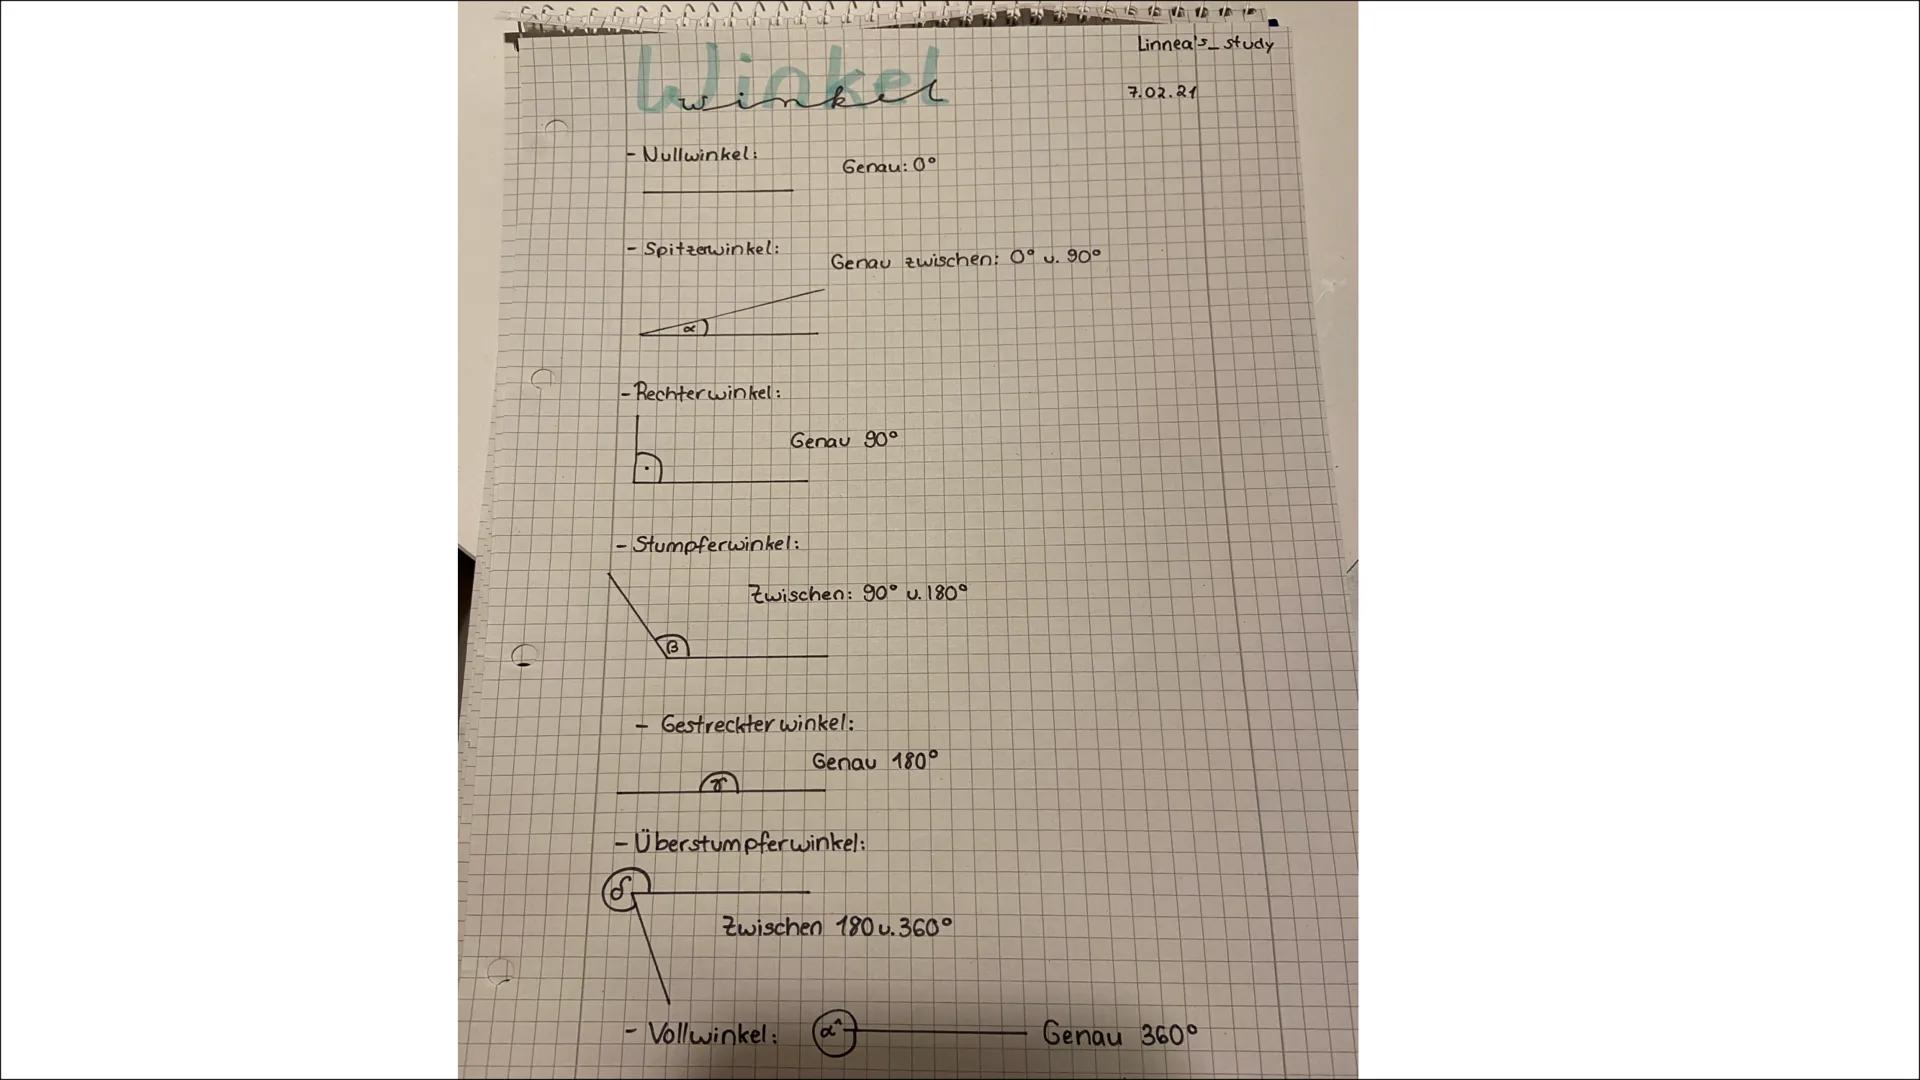 Linnea's_study
Winkel
winkel
7.02.21
- Nullwinkel:
Genau: 0°
- Spitzerwinkel:
Genau zwischen: 0° u. 90°
α
- Rechterwinkel:
Genau 90°
- Stumpferwinkel:
Zwischen: 90° u. 180°
β
- Gestreckter winkel:
Genau 180°
γ
- Überstumpferwinkel:
δ
Zwischen 180 u. 360°
- Vollwinkel: α^ Genau 360°